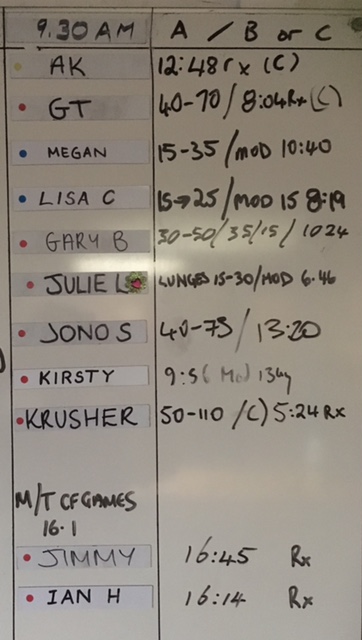 9.30 AM A / B or C
AK 12:48 rx (C)
GT 40-70 / 8:04 Rx (C)
MEGAN 15-35 / MOD 10:40
LISA C 15→25 / MOD 15 8:19
GARY B 30-50/35/15/ 1024
JULIE L LUNGES 15-30/MOD 6.46
JONO S 40-75 / 13:20
KIRSTY 9:56 Mod 13kg
KRUSHER 50-110 /C) 5:24 Rx
M/T CF GAMES
16.1
JIMMY 16:45 Rx
IAN H 16:14 Rx